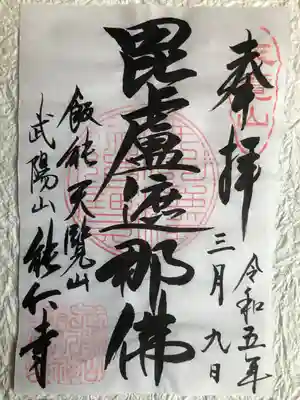 奉拝
令和五年
三月九日
毘盧遮那佛
飯能天覧山
武陽山能仁寺